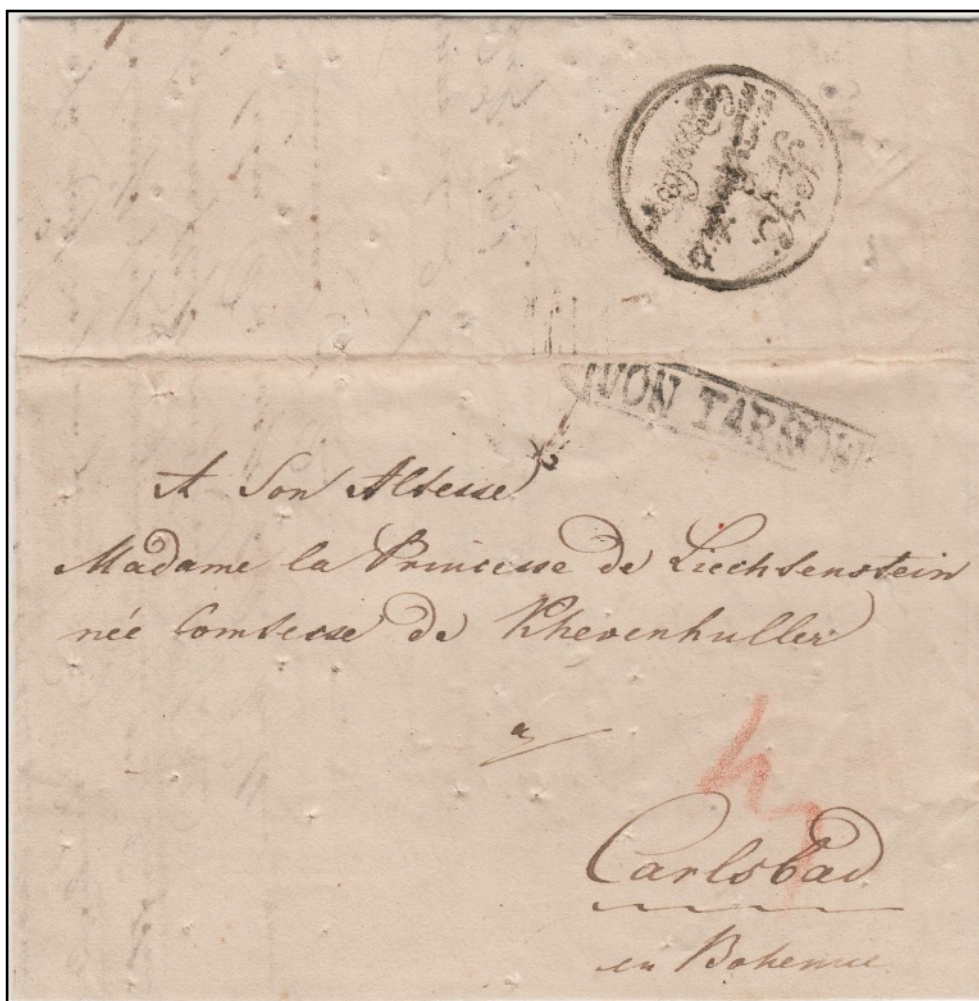 VON TARNOW
A Son Altesse
Madame la Princesse de Liechtenstein
née Comtesse de Khevenhuller
a
Carlsbad
en Boheme